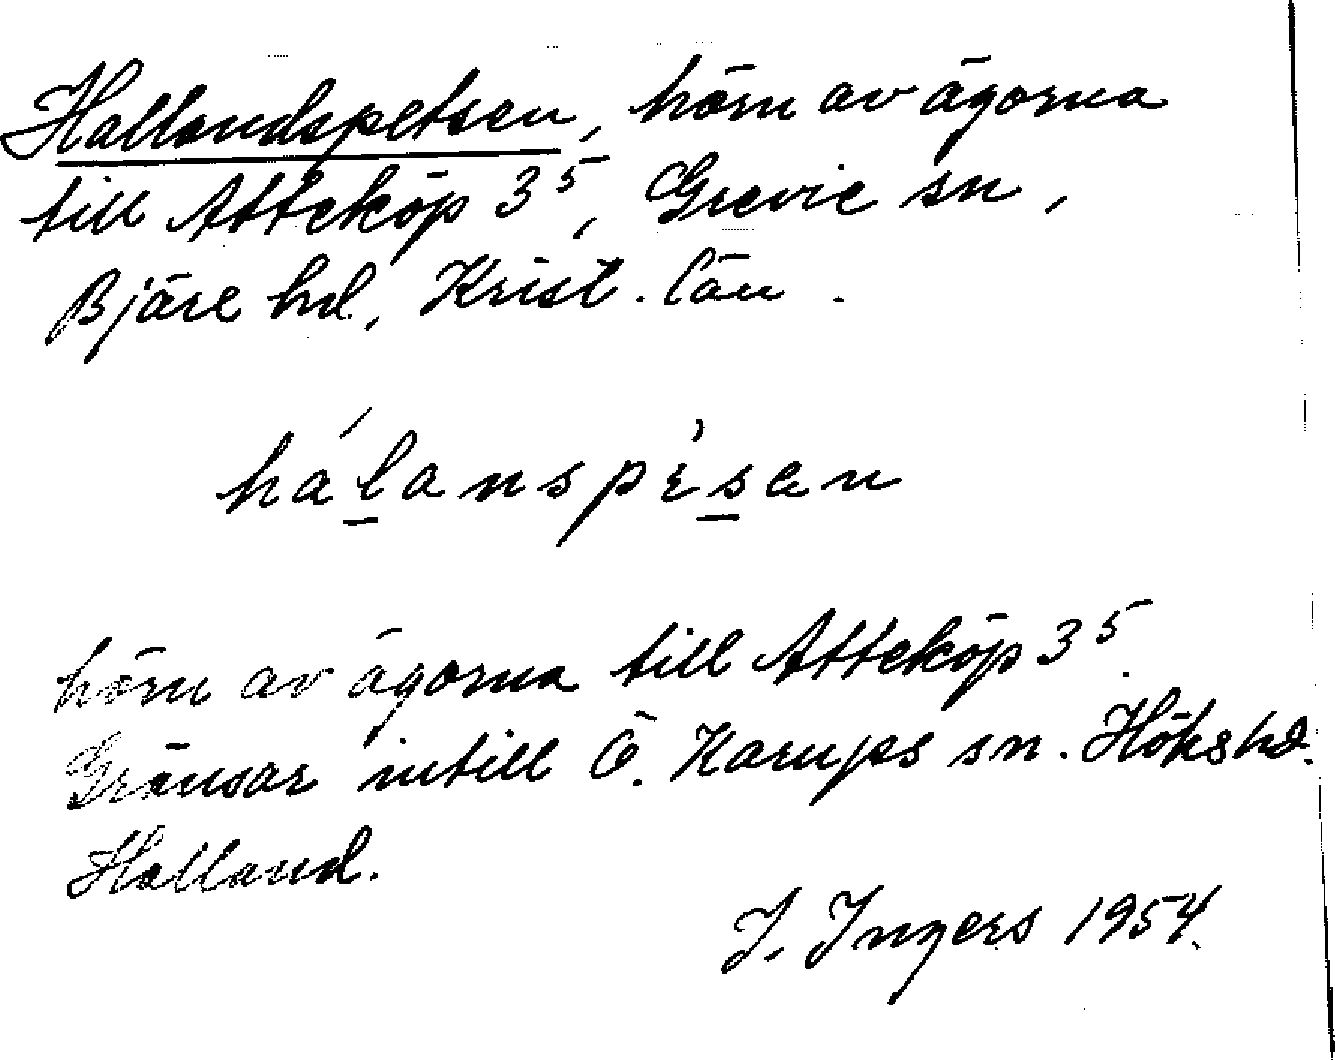 Hallandspetsen, hörn av ägorna
till Atteköp 3⁵, Grevie sn,
Bjäre hd, Krist. län.
hálanspèsen
hörn av ägorna till Atteköp 3⁵.
Gränsar intill Ö. Karups sn. Höks hd.
Halland.
I. Ingers 1954.